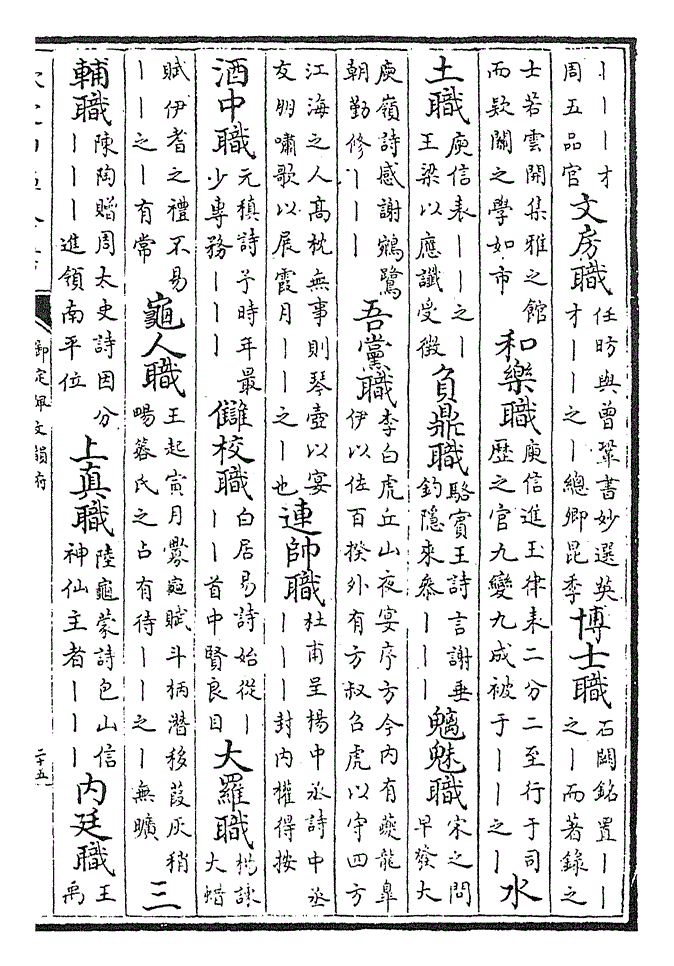 丨丨丨才周五品官 文房職 任昉與曾鞏書妙選英才丨丨之丨總卿昆季 博士職 石闕銘置丨丨之丨而著錄之
士若雲開集雅之館而欵關之學如市 和樂職 庾信進玉律表二分二至行于司歴之官九變九成被于丨丨之丨 水
土職 庾信表丨丨之丨王梁以應讖受徴 負鼎職 駱賓王詩言謝垂釣隱來參丨丨丨 魑魅職 宋之問早發大
庾嶺詩感謝鵷鷺朝勤修丨丨丨 吾黨職 李白虎丘山夜宴序方今内有夔龍臯伊以佐百揆外有方叔召虎以守四方
江海之人髙枕無事則琴壺以宴友朋嘯歌以展霞月丨丨之丨也 連帥職 杜甫呈楊中丞詩中丞丨丨丨封内權得按
酒中職 元稹詩予時年最少專務丨丨丨 讎校職 白居易詩始從丨丨丨首中賢良目 大羅職 楊諫大蜡
賦伊耆之禮不易丨丨之丨有常 龜人職 王起寅月釁龜賦斗柄潛移葭灰稍暢蓍氏之占有待丨丨之丨無曠 三
輔職 陳陶贈周太史詩因分丨丨丨進領南平位 上真職 陸龜蒙詩包山信神仙主者丨丨丨 内廷職 王禹
御定佩文韻府
二十五